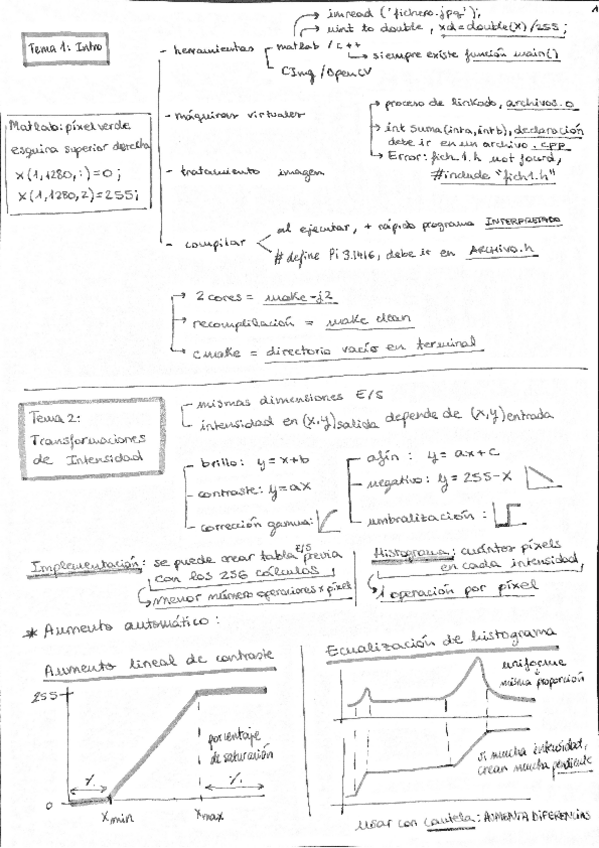 1
Tema 1: Intro
- herramientas
matlab / c++
imread ('fichero.jpg');
uint to double, xd=double(x)/255;
siempre existe función main()
CImg / OpenCV
- máquinas virtuales
- tratamiento imagen
- compilar
proceso de linkado, archivos.o
int suma(inta,intb), declaración
debe ir en un archivo .cpp
Error: fich1.h not found,
#include "fich1.h"
al ejecutar, + rápido programa INTERPRETADO
# define Pi 3.1416, debe ir en ARCHIVO.h
Matlab: píxel verde
esquina superior derecha
x(1,1280,:)=0;
x(1,1280,2)=255;
2 cores = make -j2
recompilación = make clean
cmake = directorio vacío en terminal
Tema 2:
Transformaciones
de Intensidad
- mismas dimensiones E/S
- intensidad en (x,y) salida depende de (x,y) entrada
- brillo: y = x+b
- contraste: y=ax
- corrección gamma:
- afín: y = ax+c
- negativo: y = 255-x
- umbralización:
Implementación: se puede crear tabla E/S previa
con los 256 cálculos,
menor número operaciones x píxel
Histograma: cuántos píxels
en cada intensidad,
1 operación por píxel
* Aumento automático:
Aumento lineal de contraste
255
0
%
%
porcentaje
de saturación
xmin
xmax
Ecualización de histograma
uniforme
misma proporción
si mucha intensidad,
crean mucha pendiente
usar con cautela: AUMENTA DIFERENCIAS